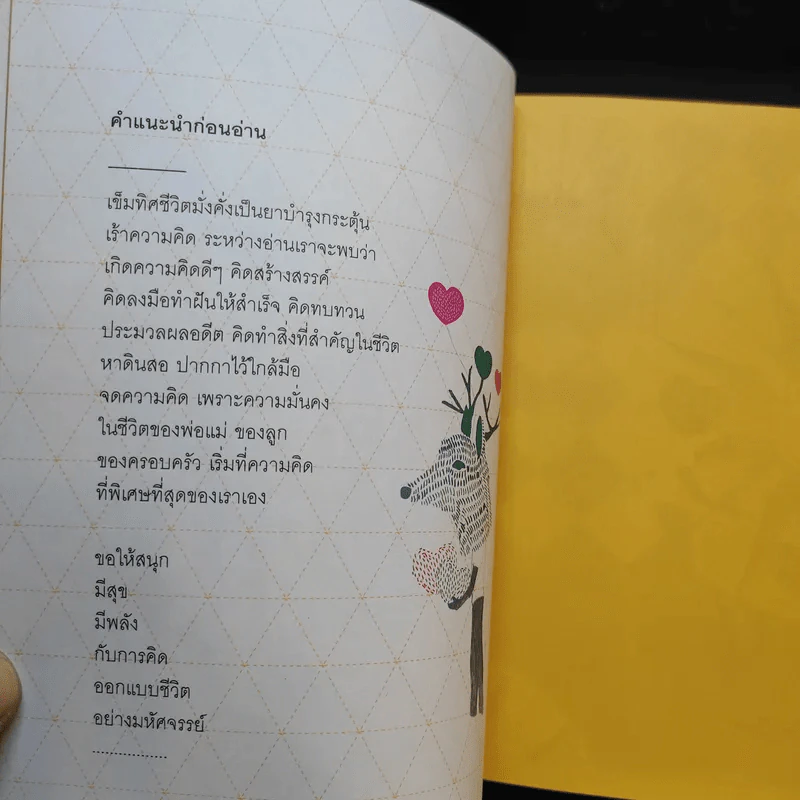 คำแนะนำก่อนอ่าน
เข็มทิศชีวิตมั่งคั่งเป็นยาบำรุงกระตุ้น
เร้าความคิด ระหว่างอ่านเราจะพบว่า
เกิดความคิดดีๆ คิดสร้างสรรค์
คิดลงมือทำฝันให้สำเร็จ คิดทบทวน
ประมวลผลอดีต คิดทำสิ่งที่สำคัญในชีวิต
หาดินสอ ปากกาไว้ใกล้มือ
จดความคิด เพราะความมั่นคง
ในชีวิตของพ่อแม่ ของลูก
ของครอบครัว เริ่มที่ความคิด
ที่พิเศษที่สุดของเราเอง
ขอให้สนุก
มีสุข
มีพลัง
กับการคิด
ออกแบบชีวิต
อย่างมหัศจรรย์